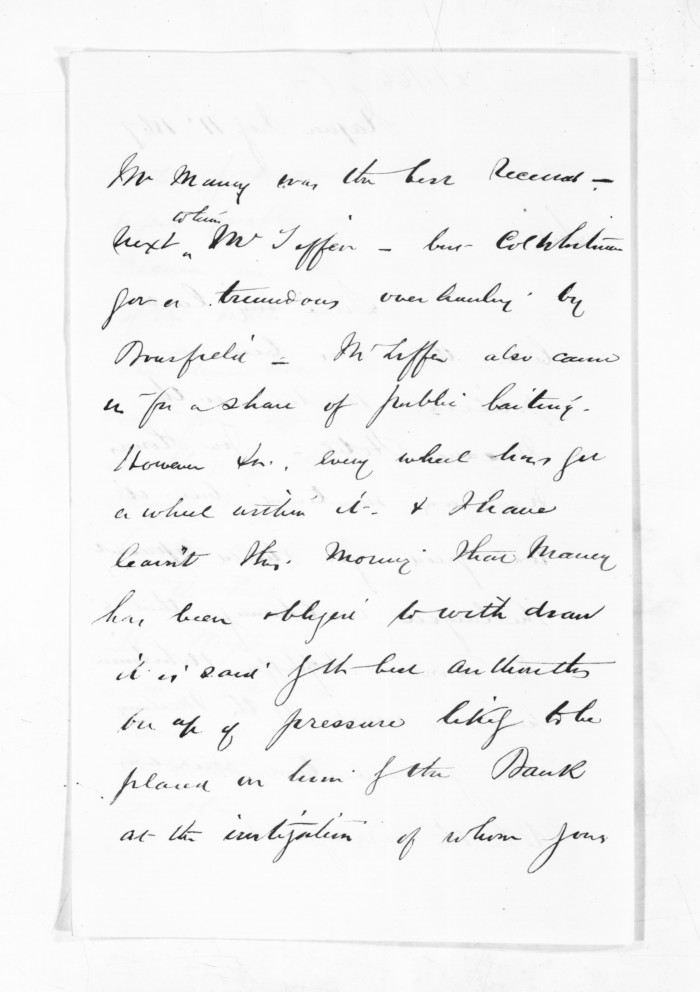 Mr Maney was the best received -
to him
next ^ Mr Tiffen - but Col Whitmore
got a tremendous overhauling by
Bousfield - Mr Tiffen also came
in for a share of public baiting.
However Sir, every wheel has got
a wheel within it. & I have
learnt this. Morning that Maney
has been obliged to withdraw
it is said by the best authorities
on a/c of pressure likely to be
placed on him by the Bank
at the instigation of whom your